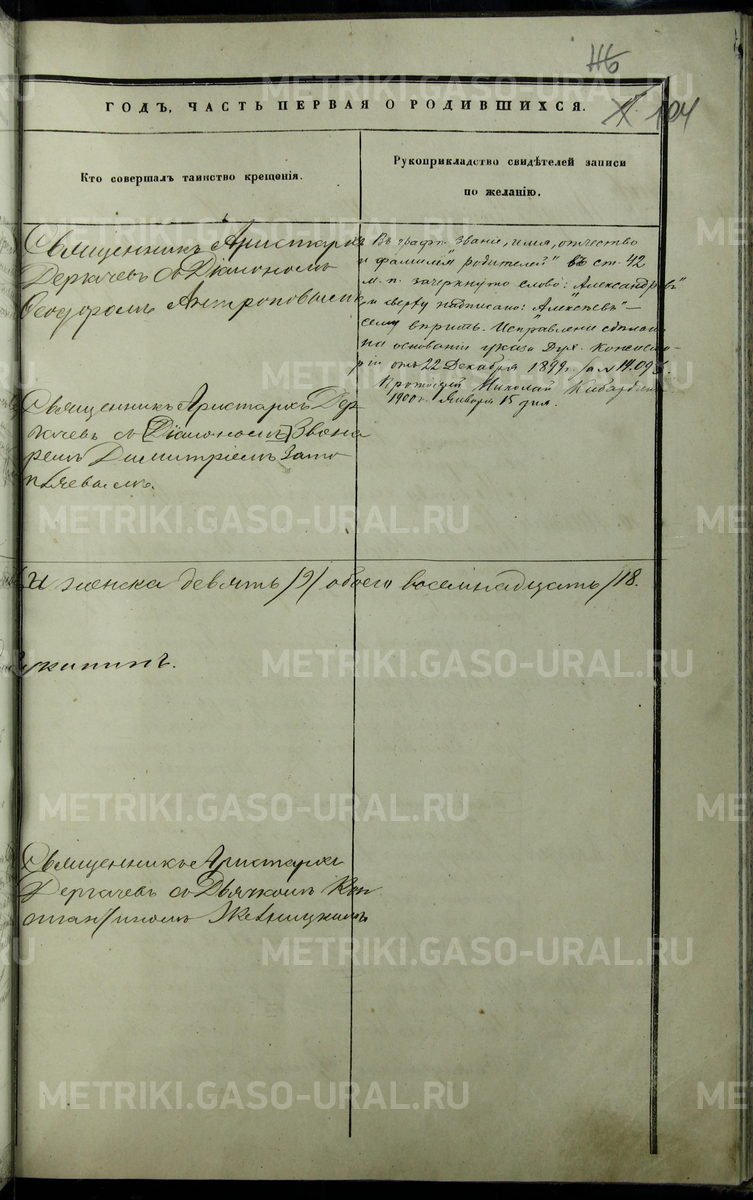 НБ
104
ГОДЪ, ЧАСТЬ ПЕРВАЯ О РОДИВШИХСЯ.
Кто совершалъ таинство крещенія.
Рукоприкладство свидѣтелей записи
по желанію.
Священникъ Аристархъ
Дергачевъ съ Діакономъ
Ѳеодоромъ Антроповымъ
Священникъ Аристархъ Дер
гачевъ съ [Діакономъ] Звона
ремъ Димитріемъ
Въ графѣ "званіе, имя, отчество
и фамилія родителей" въ ст. 42
м. п. зачеркнуто слово: "Александровъ"
и сверху надписано: "Алексѣевъ" —
сему вѣрить. Исправленіе сдѣлано
на основаніи указа Дух. Консисто-
ріи отъ 22 Декабря 1899 г. за №
Протоіерей Николай
1900 г. Января 15 дня.
и женска девять /9/ обоего восемнадцать /18.
Священникъ Аристархъ
Дергачевъ съ Дьячкомъ Кон
стантиномъ
METRIKI.GASO-URAL.RU